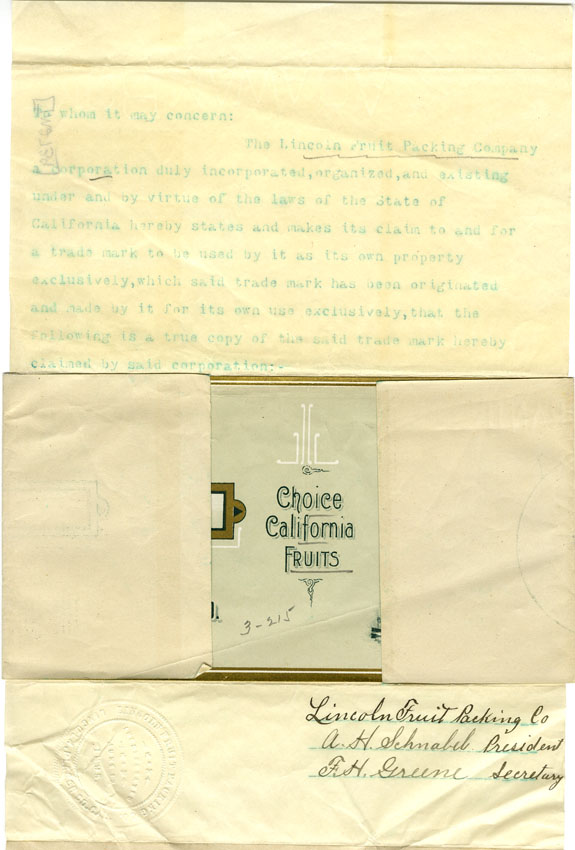 To whom it may concern:
The Lincoln Fruit Packing Company
a corporation duly incorporated,organized,and existing
under and by virtue of the laws of the State of
California hereby states and makes its claim to and for
a trade mark to be used by it as its own property
exclusively,which said trade mark has been originated
and made by it for its own use exclusively,that the
following is a true copy of the said trade mark hereby
claimed by said corporation:-
Choice
California
FRUITS
3-215
Lincoln Fruit Packing Co
A. H. Schnabel President
F. H. Greene Secretary